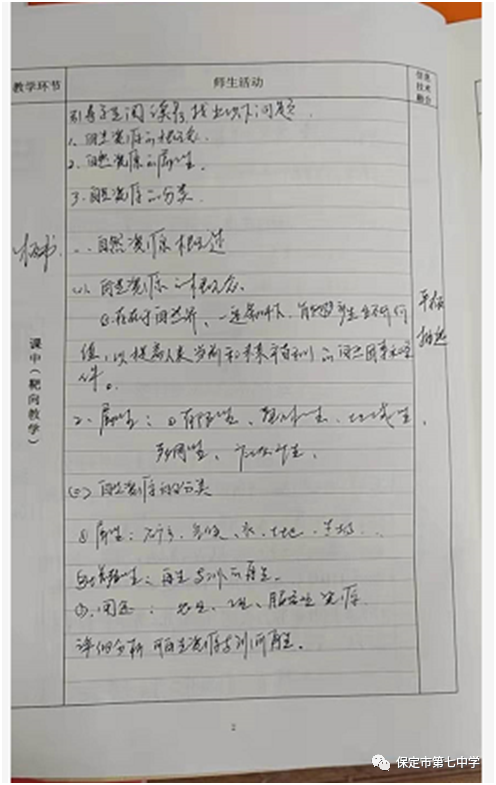 教学环节
师生活动
信息
技术
融合
引导学生阅读教材,找出以下问题.
1. 自然资源的概念.
2. 自然资源的属性.
3. 自然资源的分类.
板书.
一. 自然资源概述
(1). 自然资源的概念.
①存在于自然界、一定条件下、
值,以提高人类当前和未来 的自然因素和条
件。
平板
课中(靶向教学)
2. 属性:①有限性、整体性、地域性、
多用性、
(二) 自然资源的分类
① 属性:矿产、气候、水、土地、生物...
再生与非可再生.
③.用途: 农业、工业、服务业资源.
详细分析可再生资源与非可再生.
2
保定市第七中学